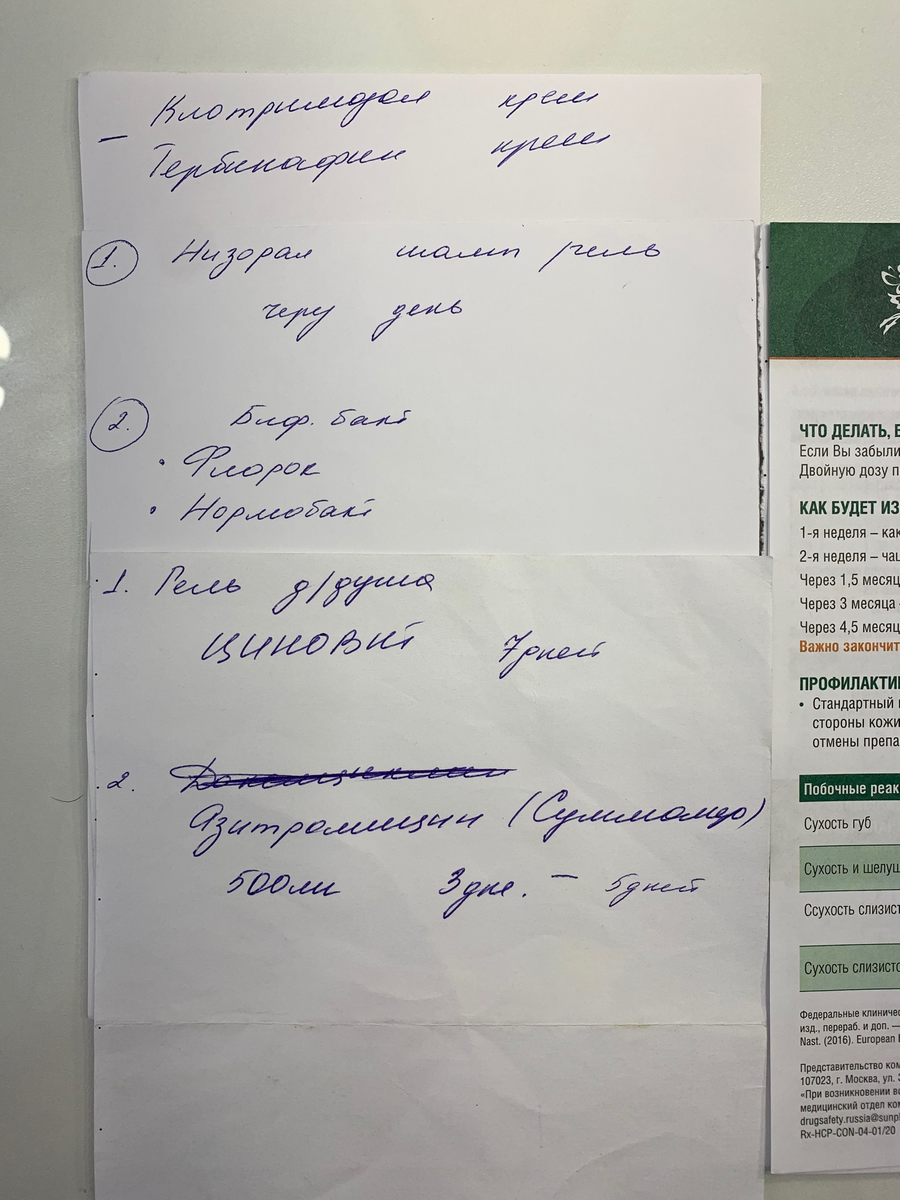 Клотримазол крем
– Тербинафин крем
1. Низорал шамп /гель
через день
2. Биф. бакт
• Флорок
• Нормобакт
1. Гель д/душа
ЦИНОВИТ 7 дней
2.
Азитромицин (Суммамед)
500мг 3 дне. – 5 дней
ЧТО ДЕЛАТЬ, Е
Если Вы забыли
Двойную дозу п
КАК БУДЕТ ИЗ
1-я неделя – как
2-я неделя – чащ
Через 1,5 месяц
Через 3 месяца
Через 4,5 месяц
Важно закончит
ПРОФИЛАКТИ
• Стандартный
стороны кожи
отмены препа
Побочные реак
Сухость губ
Сухость и шелуш
Ссухость слизист
Сухость слизисто
Федеральные клиничес
изд., перераб. и доп. —
Nast. (2016). European
Представительство ком
107023, г. Москва, ул. Э
«При возникновении во
медицинский отдел ком
drugsafety.russia@sunph
Rx-HCP-CON-04-01/20